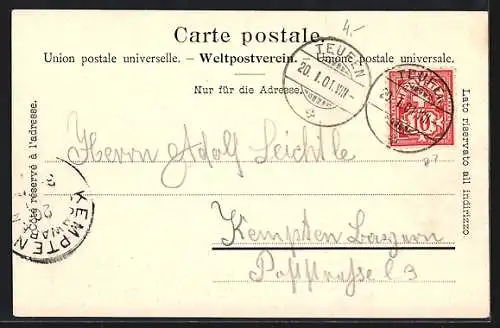 4.-
Carte postale.
Union postale universelle. – Weltpostverein. – Unione postale universale.
Nur für die Adresse.
TEUFEN
20. I. 01. VIII
TEUFEN
20. I. 01. VIII
10
Côté réservé à l'adresse.
Lato riservato all indirizzo.
Herrn Adolf Leichtle
Kempten Bayern
Poststrasse
KEMPTEN